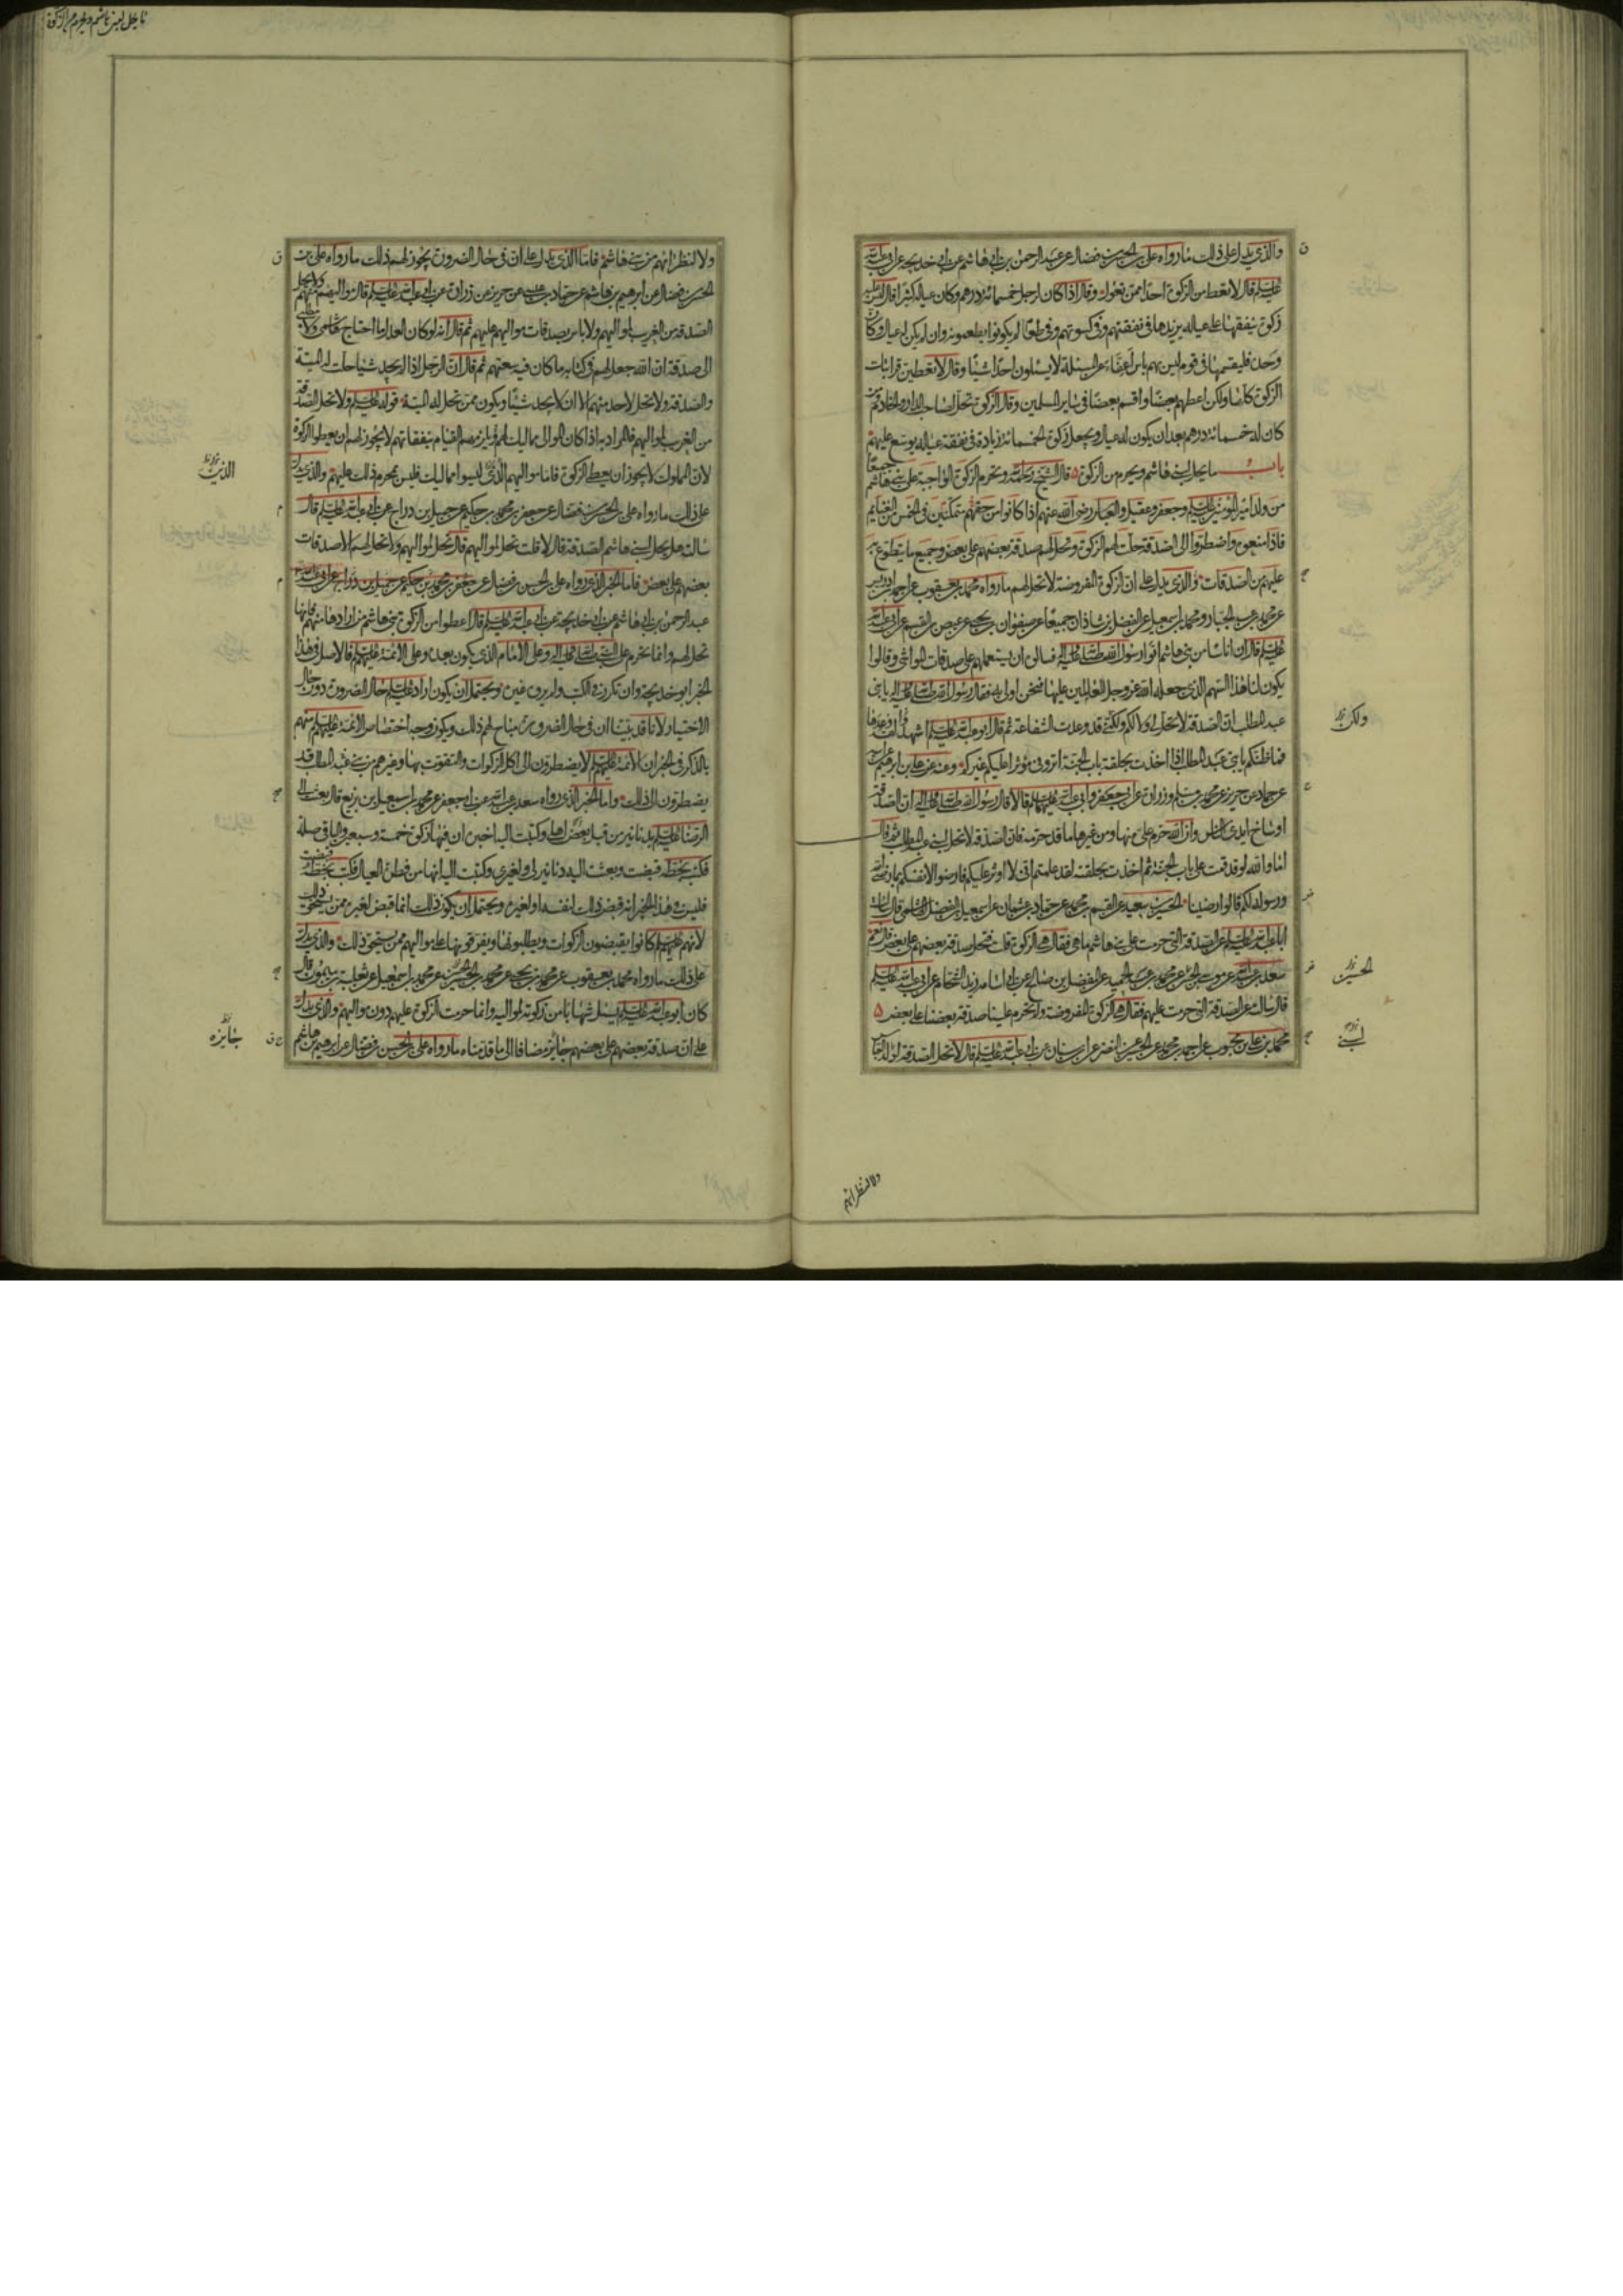 والذی یدل علی ذلک ما رواه علی بن الحسن بن فضال عن عبد الرحمن بن ابی هاشم عن ابی خدیجة عن ابی عبد الله
علیه السلم قال لا تعط من الزکوة احدا ممن تعول وقال اذا کان لرجل خمسمائة درهم وکان عیاله کثیرا قال لیس علیه
زکوة ینفقها علی عیاله یزیدها فی نفقتهم وفی کسوتهم وفی طعام لم یکونوا یطعمونه وان لم یکن له عیال وکان
وحده فلیقسمها فی قوم لیس بهم باس اعفاء عن المسئلة لا یسئلون احدا شیئا وقال لا تعطین قرابتک
الزکوة کلها ولکن اعطهم بعضا واقسم بعضا فی سایر المسلمین وقال الزکوة تحل لصاحب الدار والخادم ومن
کان له خمسمائة درهم بعد ان یکون له عیال ویجعل زکوة الخمسمائة زیادة فی نفقة عیاله یوسع علیهم
باب ما یحل لبنی هاشم ویحرم من الزکوة قال الشیخ رحمه الله وتحرم الزکوة الواجبة علی بنی هاشم جمیعا
من ولد امیر المومنین علیه السلم وجعفر وعقیل والعباس رضی الله عنهم اذا کانوا من حقهم متمکنین فی الخمس من الغنایم
فاذا منعوه واضطروا الی الصدقة حلت لهم الزکوة وتحل لهم صدقة بعضهم علی بعض وجمیع ما یتطوع به
علیهم من الصدقات والذی یدل علی ان الزکوة المفروضة لا تحل لهم ما رواه محمد بن یعقوب عن احمد بن ادریس
عن محمد بن عبد الجبار ومحمد بن اسمعیل عن الفضل بن شاذان جمیعا عن صفوان بن یحیی عن عیص بن القسم عن ابی عبد الله
علیه السلم قال ان اناسا من بنی هاشم اتوا رسول الله صلی الله علیه واله فسالوه ان یستعملهم علی صدقات المواشی وقالوا
یکون لنا هذا السهم الذی جعله الله عز وجل للعاملین علیها فنحن اولی به فقال رسول الله صلی الله علیه واله یا بنی
عبد المطلب ان الصدقة لا تحل لی ولا لکم ولکنی قد وعدت الشفاعة ثم قال ابو عبد الله علیه السلم اشهد لقد وعدها
فما ظنکم یا بنی عبد المطلب اذا اخذت بحلقة باب الجنة اترونی مؤثرا علیکم غیرکم وعنه عن علی بن ابرهیم عن ابیه
عن حماد عن حریز عن محمد بن مسلم وزرارة عن ابی جعفر وابی عبد الله علیهما السلم قالا قال رسول الله صلی الله علیه واله ان الصدقة
اوساخ ایدی الناس وان الله حرم علی منها ومن غیرها ما قد حرمه فان الصدقة لا تحل لبنی عبد المطلب ثم قال
اما والله لو قد قمت علی باب الجنة ثم اخذت بحلقته لقد علمتم انی لا اوثر علیکم فارضوا لانفسکم بما رضی الله
ورسوله لکم قالوا رضینا الحسین بن سعید عن القسم بن محمد عن حماد بن عثمان عن اسمعیل بن الفضل الهاشمی قال سالت
ابا عبد الله علیه السلم عن الصدقة التی حرمت علی بنی هاشم ما هی فقال هی الزکوة قلت فتحل صدقة بعضهم علی بعض قال نعم
سعد بن عبد الله عن موسی بن الحسن عن محمد بن عبد الحمید عن المفضل بن صالح عن ابی اسامة زید الشحام عن ابی عبد الله علیه السلم
قال سالته عن الصدقة التی حرمت علیهم فقال هی الزکوة المفروضة ولم تحرم علینا صدقة بعضنا علی بعض
محمد بن علی بن محبوب عن احمد بن محمد عن الحسین عن النضر عن ابن سنان عن ابی عبد الله علیه السلم قال لا تحل الصدقة لولد العباس
ولکن
الحسین
لبنی
ولا لنظرائهم
ما یحل لبنی هاشم ویحرم من الزکوة
ولا لنظرائهم من بنی هاشم فاما الذی یدل علی ان فی حال الضرورة یجوز لهم ذلک ما رواه علی بن
الحسن بن فضال عن ابرهیم بن هاشم عن حماد بن عیسی عن حریز عن زرارة عن ابی عبد الله علیه السلم قال موالیهم منهم ولا تحل
الصدقة من الغریب لموالیهم ولا باس بصدقات موالیهم علیهم ثم قال انه لو کان العدل ما احتاج هاشمی ولا مطلبی
الی صدقة ان الله جعل لهم فی کتابه ما کان فیه سعتهم ثم قال ان الرجل اذا لم یجد شیئا حلت له المیتة
والصدقة ولا تحل لاحد منهم الا ان لا یجد شیئا ویکون ممن تحل له المیتة قوله علیه السلم ولا تحل الصدقة
من الغریب لموالیهم فالمراد به اذا کان الموالی ممالیک لهم ویلزمهم القیام بنفقاتهم لا یجوز لهم ان یعطوا الزکوة
لان المملوک لا یجوز ان یعطی الزکوة فاما موالیهم الذی لیسوا ممالیک فلیس یحرم ذلک علیهم والذی یدل
علی ذلک ما رواه علی بن الحسن بن فضال عن جعفر بن محمد بن حکیم عن جمیل بن دراج عن ابی عبد الله علیه السلم قال
سالته هل تحل لبنی هاشم الصدقة قال لا قلت تحل لموالیهم قال تحل لموالیهم ولا تحل لهم الا صدقات
بعضهم علی بعض فاما الخبر الذی رواه علی بن الحسن بن فضال عن جعفر بن محمد بن حکیم عن جمیل بن دراج عن ابی عبد الله
عبد الرحمن بن ابی هاشم عن ابی خدیجة عن ابی عبد الله علیه السلم قال اعطوا من الزکوة بنی هاشم من ارادها منهم فانها
تحل لهم وانما تحرم علی النبی صلی الله علیه واله وعلی الامام الذی یکون بعده وعلی الائمة علیهم السلم فالاصل فی هذا
الخبر ابو خدیجة وان تکرر فی الکتب ولم یروه غیره ویحتمل ان یکون اراد علیه السلم حال الضرورة دون حال
الاختیار لانا قد بینا ان فی حال الضرورة مباح لهم ذلک ویکون وجه اختصاص الائمة علیهم السلم منهم
بالذکر فی الخبر ان الائمة علیهم السلم لا یضطرون الی اکل الزکوات والتقوت بها وغیرهم من بنی عبد المطلب قد
یضطرون الی ذلک واما الخبر الذی رواه سعد بن عبد الله عن ابی جعفر عن محمد بن اسمعیل بن بزیع قال بعثت الی
الرضا علیه السلم بدنانیر من قبل بعض اهلی وکتبت الیه اخبره ان فیها زکوة خمسة وسبعون والباقی صلة
فکتب بخطه قبضت وبعثت الیه دنانیر لی ولغیری وکتبت الیه انها من فطرة العیال فکتب بخطه قبضت
فلیس فی هذا الخبر انه قبض ذلک لنفسه او لغیره ویحتمل ان یکون ذلک انما قبض لغیره ممن یستحق ذلک
لانهم علیهم السلم کانوا یقبضون الزکوات ویطلبونها ویفرقونها علی موالیهم ممن یستحق ذلک والذی یدل
علی ذلک ما رواه محمد بن یعقوب عن محمد بن یحیی عن محمد بن الحسین عن محمد بن اسمعیل عن ثعلبة بن میمون قال
کان ابو عبد الله علیه السلم یسئل شهابا من زکوته لموالیه وانما حرمت الزکوة علیهم دون موالیهم والذی یدل
علی ان صدقة بعضهم علی بعضهم جائز مضافا الی ما قدمناه ما رواه علی بن الحسن بن فضال عن ابرهیم بن هاشم
الذین
جایزه